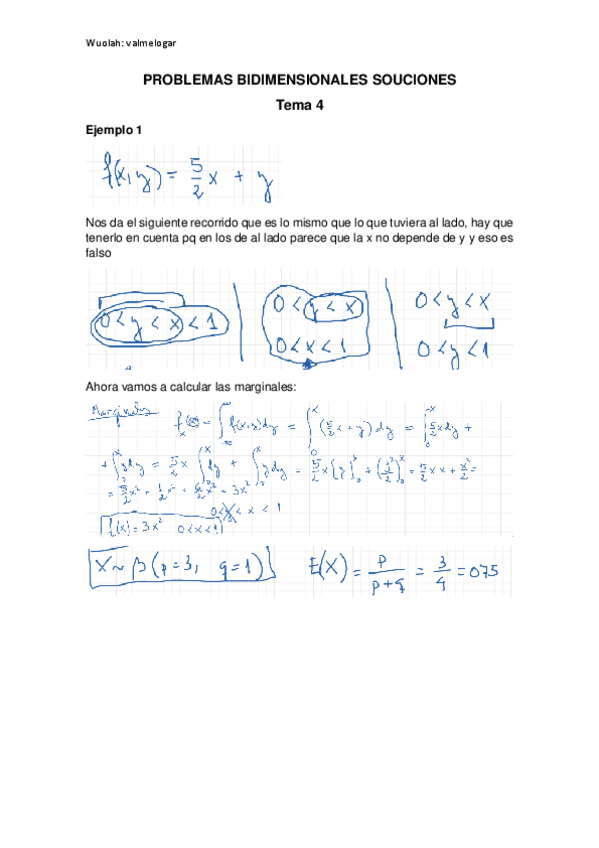 Wuolah: valmelogar
PROBLEMAS BIDIMENSIONALES SOUCIONES
Tema 4
Ejemplo 1
f(x,y) = 5/2 x + y
Nos da el siguiente recorrido que es lo mismo que lo que tuviera al lado, hay que
tenerlo en cuenta pq en los de al lado parece que la x no depende de y y eso es
falso
0 < y < x < 1
0 < y < x
0 < x < 1
0 < y < x
0 < y < 1
Ahora vamos a calcular las marginales:
Marginales f_x(x) = ∫_{-∞}^{∞} f(x,y)dy = ∫_0^x (5/2 x + y) dy = ∫_0^x 5/2 x dy +
+ ∫_0^x y dy = 5/2 x ∫_0^x dy + ∫_0^x y dy = 5/2 x [y]_0^x + (y²/2)_0^x = 5/2 x x + x²/2 =
= 5/2 x² + 1/2 x² = 6/2 x² = 3x²
0 < y < x < 1
f(x) = 3x² 0 < x < 1
X ~ β(p=3, q=1)
E(X) = p/(p+q) = 3/4 = 075